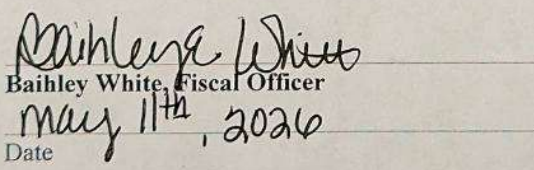 Baihley A White
Baihley White, Fiscal Officer
May 11th, 2026
Date